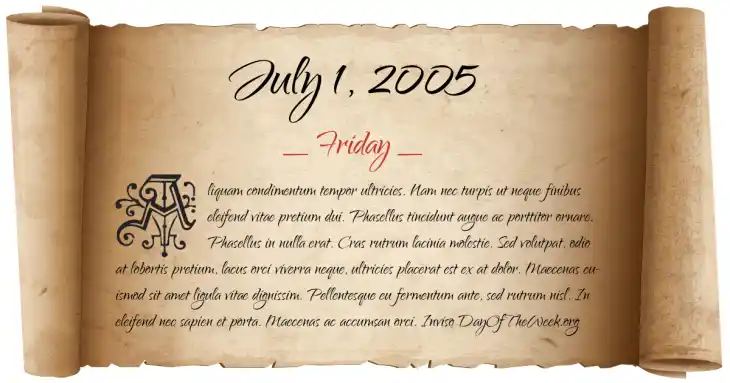 July 1, 2005
__ Friday __
Aliquam condimentum tempor ultricies. Nam nec turpis ut neque finibus
eleifend vitae pretium dui. Phasellus tincidunt augue ac porttitor ornare.
Phasellus in nulla erat. Cras rutrum lacinia molestie. Sed volutpat, odio
at lobortis pretium, lacus orci viverra neque, ultricies placerat est ex at dolor. Maecenas eu-
ismod sit amet ligula vitae dignissim. Pellentesque eu fermentum ante, sed rutrum nisl. In
eleifend nec sapien et porta. Maecenas ac accumsan orci. Inviso DayOfTheWeek.org